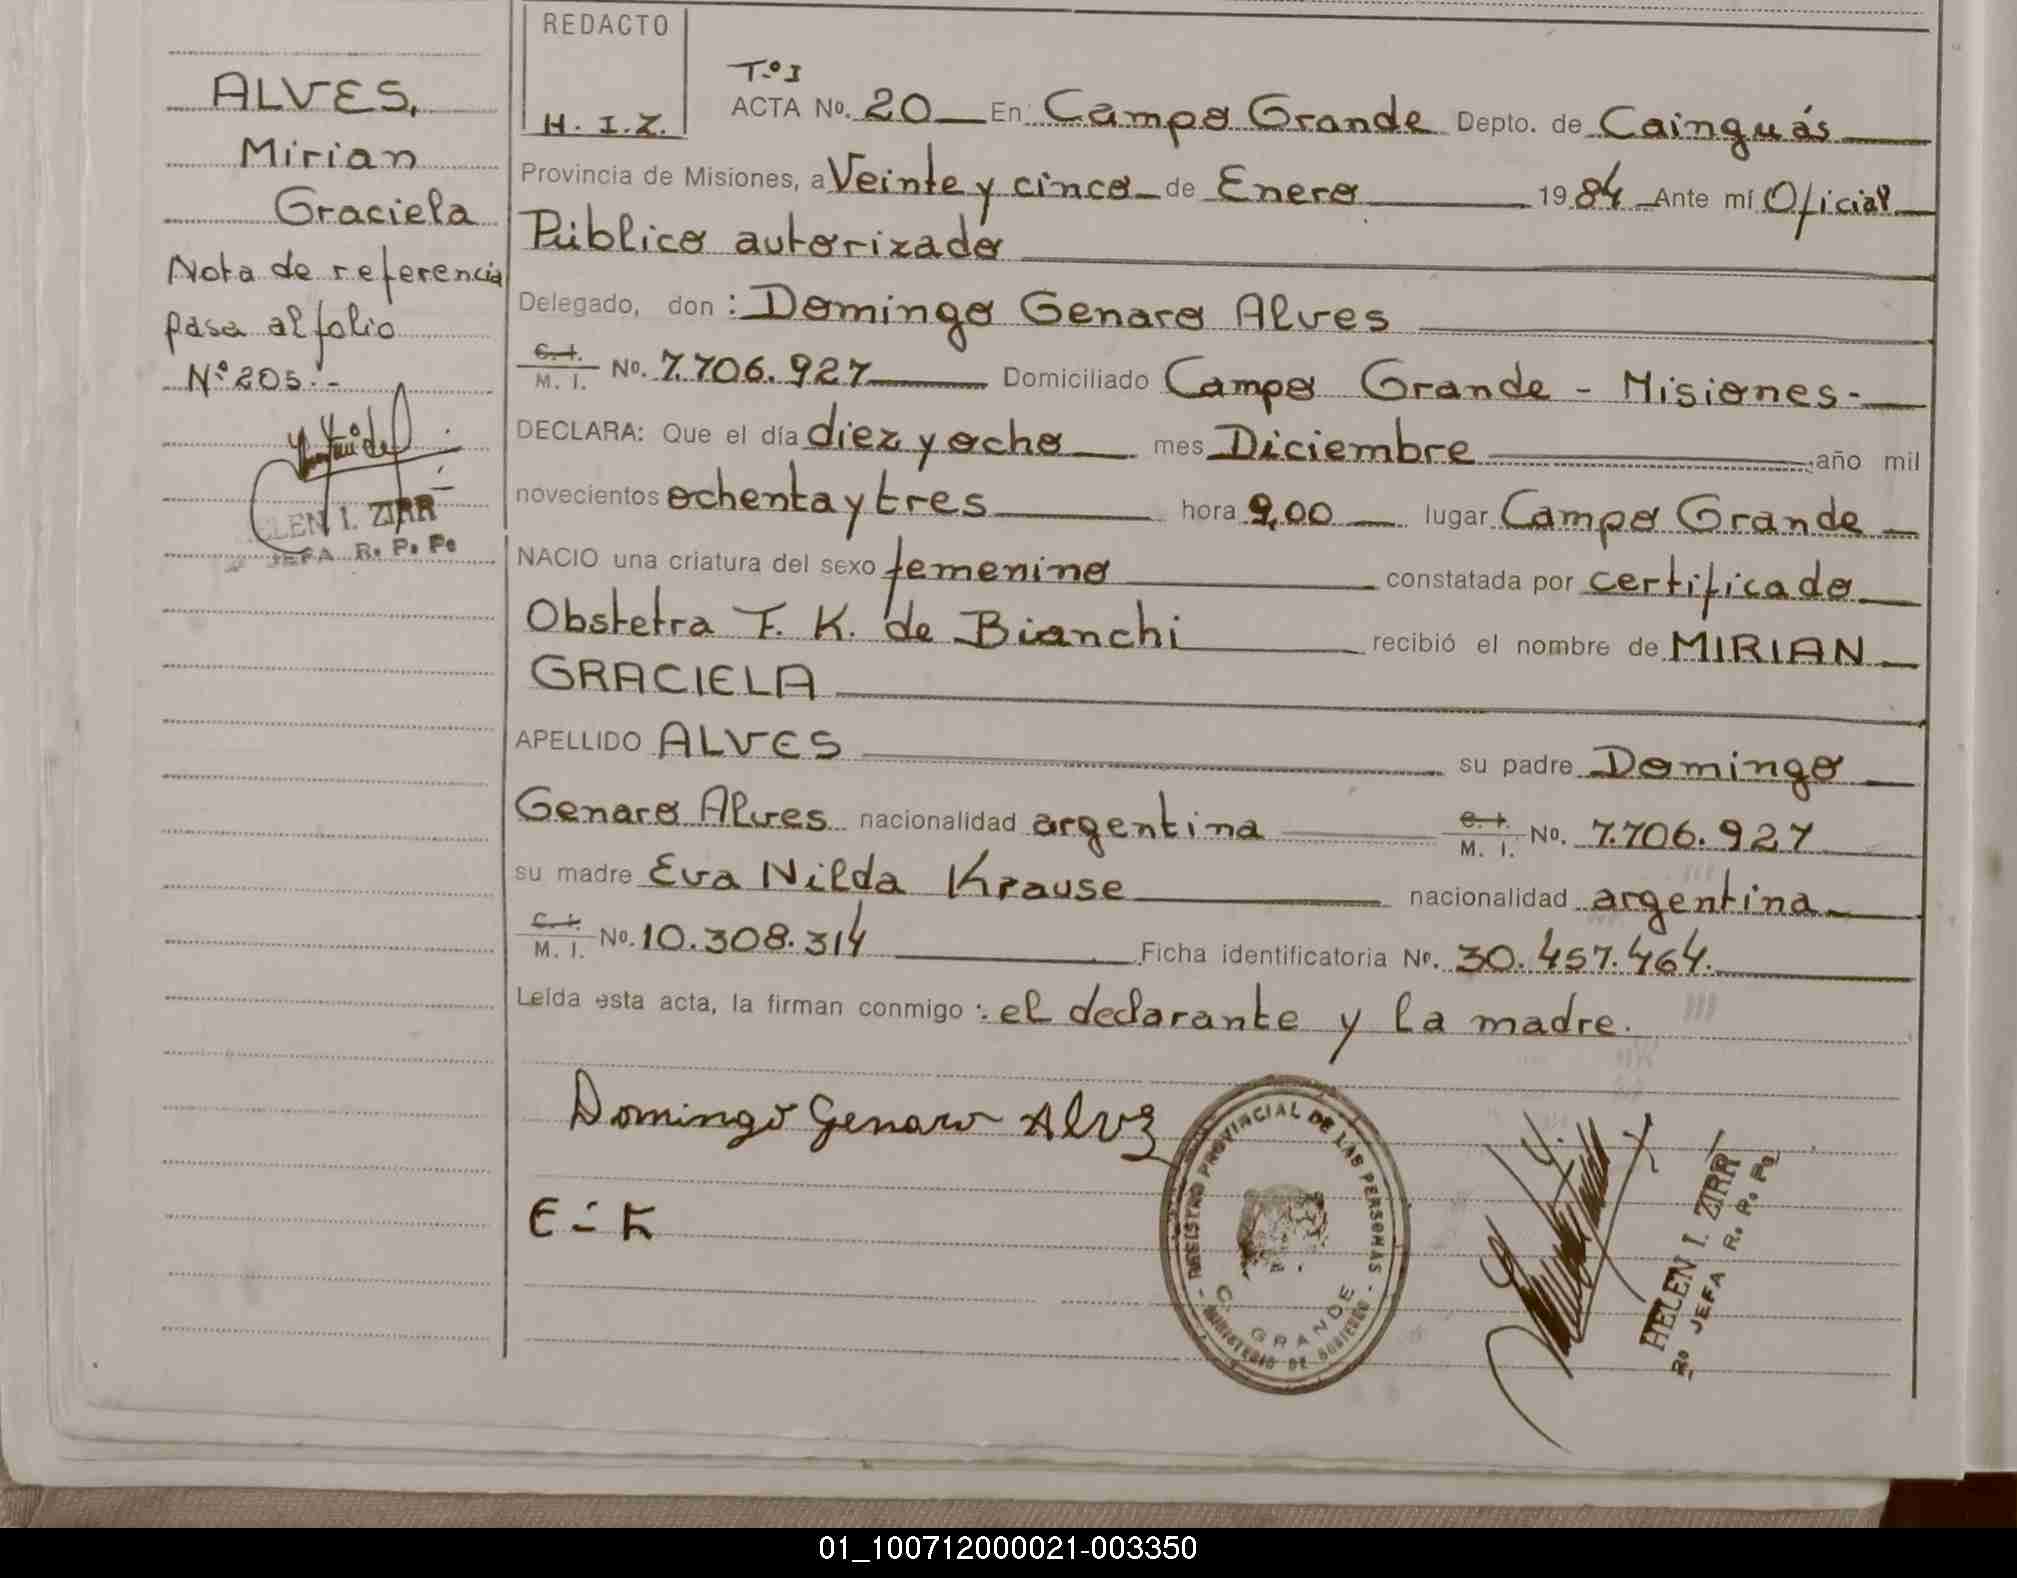 REDACTO
H. I. Z.
ALVES,
Mirian
Graciela
Nota de referencia
pasa al folio
Nº 205.-
ELEN I. ZIRR
JEFA R. P. P.
T.º I
ACTA No. 20 En Campo Grande Depto. de Cainguás
Provincia de Misiones, a Veinte y cinco de Enero 1984 Ante mí Oficial
Público autorizado
Delegado, don : Domingo Genaro Alves
C. I. M. I. No. 7.706.927 Domiciliado Campo Grande - Misiones-
DECLARA: Que el día diez y ocho mes Diciembre año mil
novecientos ochenta y tres hora 9,00 lugar Campo Grande
NACIO una criatura del sexo femenino constatada por certificado
Obstetra T. K. de Bianchi recibió el nombre de MIRIAN
GRACIELA
APELLIDO ALVES su padre Domingo
Genaro Alves nacionalidad argentina C. I. M. I. No. 7.706.927
su madre Eva Nilda Krause nacionalidad argentina
C. I. M. I. No. 10.308.314 Ficha identificatoria No. 30.457.464.
Leída esta acta, la firman conmigo : el declarante y la madre.
Domingo Genaro Alvez
E - K
REGISTRO PROVINCIAL DE LAS PERSONAS
C. GRANDE
MINISTERIO DE GOBIERNO
HELEN I. ZIRR
JEFA R. P. P.
01_100712000021-003350